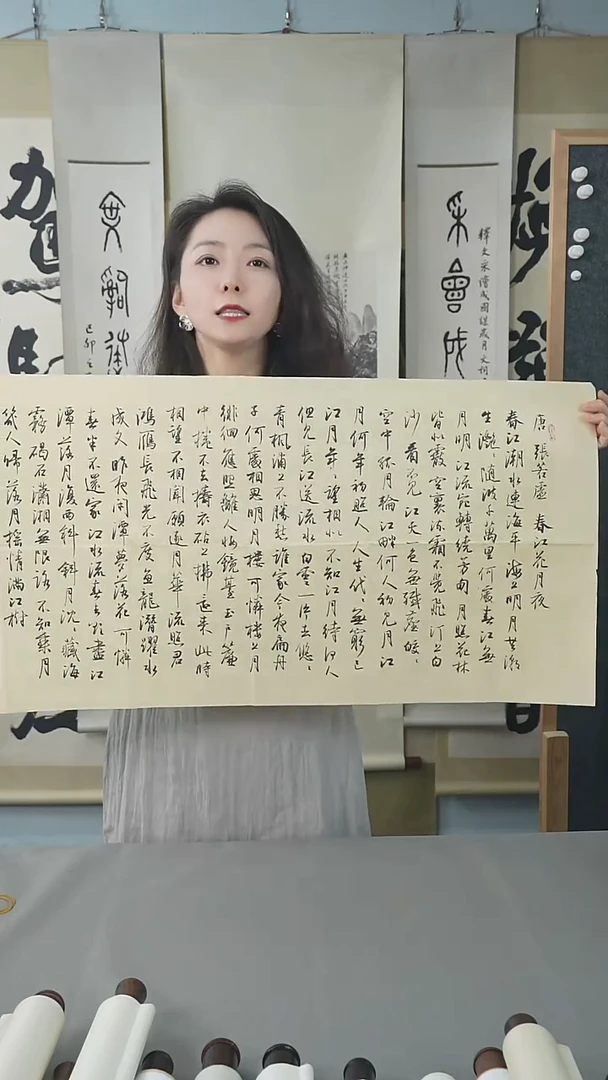 唐 張若虛 春江花月夜
春江潮水連海平海上明月共潮
生灩灩隨波千萬里何處春江無
月明江流宛轉繞芳甸月照花林
皆似霰空裏流霜不覺飛汀上白
沙看不見江天一色無纖塵皎皎
空中孤月輪江畔何人初見月江
月何年初照人人生代代無窮已
江月年年望相似不知江月待何人
但見長江送流水白雲一片去悠悠
青楓浦上不勝愁誰家今夜扁舟
子何處相思明月樓可憐樓上月
徘徊應照離人妝鏡臺玉戶簾
中捲不去擣衣砧上拂還來此時
相望不相聞願逐月華流照君
鴻雁長飛光不度魚龍潛躍水
成文昨夜閒潭夢落花可憐
春半不還家江水流春去欲盡江
潭落月復西斜斜月沈沈藏海
霧碣石瀟湘無限路不知乘月
幾人歸落月搖情滿江樹